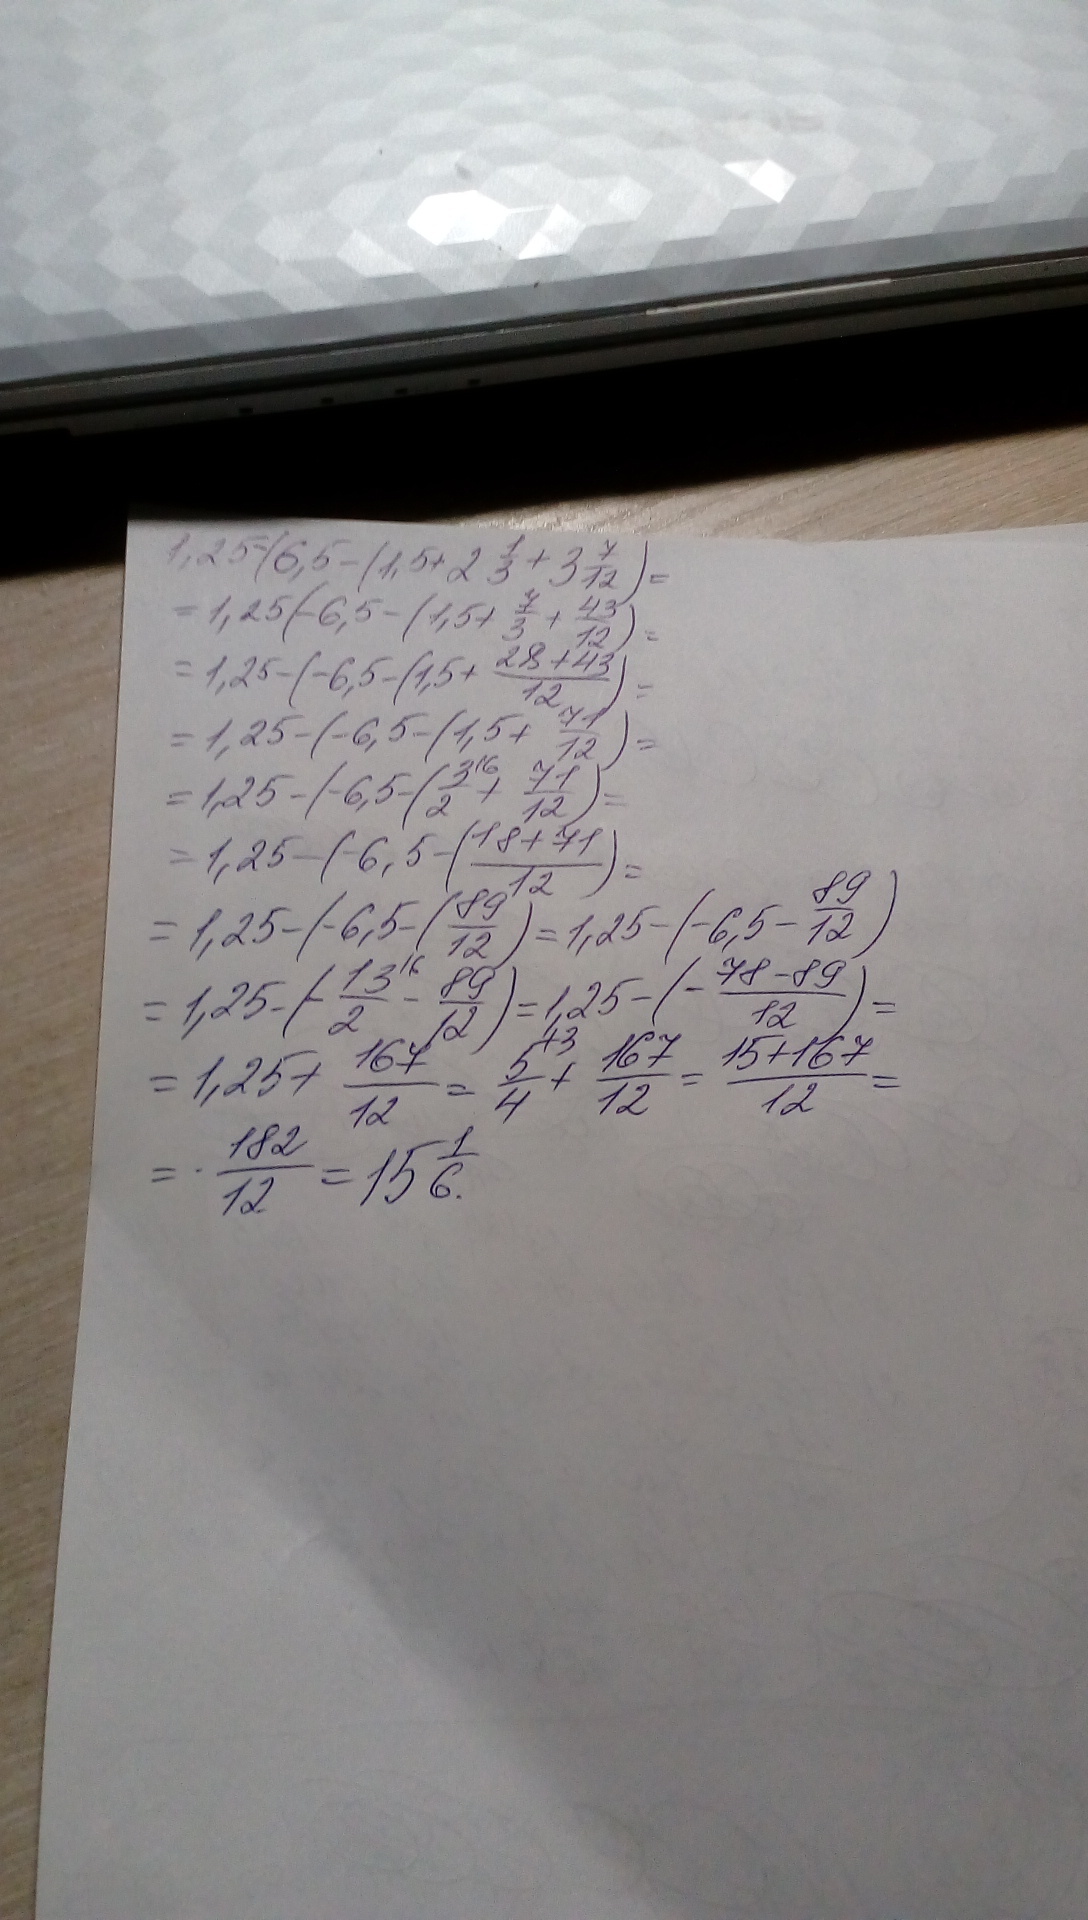 1,25-(6,5-(1,5+2 1/3+3 7/12)=
=1,25(-6,5-(1,5+7/3+43/12)=
=1,25-(-6,5-(1,5+(28+43)/12)=
=1,25-(-6,5-(1,5+71/12)=
=1,25-(-6,5-(3/2^{16}+71/12)=
=1,25-(-6,5-((18+71)/12)=
=1,25-(-6,5-(89/12)=1,25-(-6,5-89/12)
=1,25-(-13/2^{16}-89/12)=1,25-(-(78-89)/12)=
=1,25+167/12=5/4^{+3}+167/12=(15+167)/12=
=182/12=15 1/6.